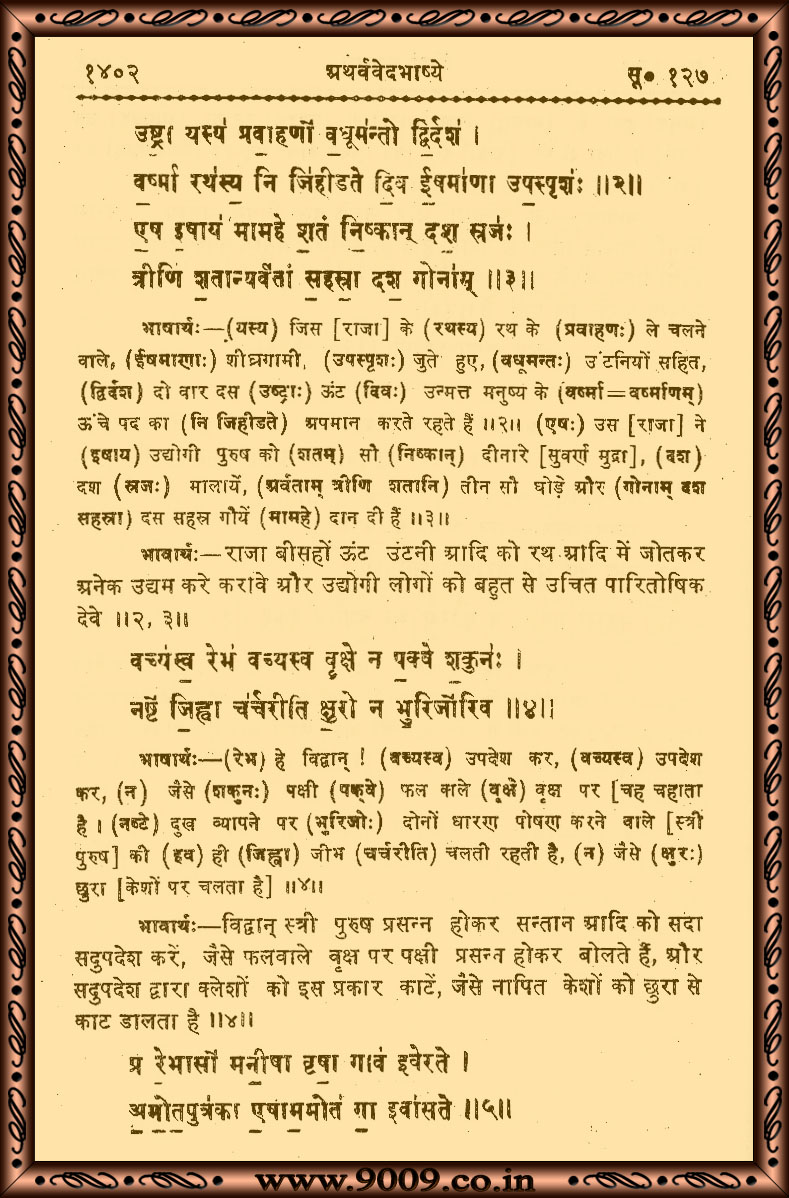 १४०२ अथर्ववेदभाष्ये सू० १२७
उष्ट्रा यस्य॑ प्रवाहणो॑ व॒धूम॑न्तो द्वि॒र्दश॑ ।
व॒र्ष्मा रथ॑स्य॒ नि जि॑हीडते दि॒व ई॒षमा॑णा उप॒स्पृशः॑ ॥२॥
ए॒ष इ॒षाय॑ मामहे श॒तं नि॒ष्कान् दश॒ स्रजः॑ ।
त्रीणि॑ श॒तान्यर्व॑तां स॒हस्रा॒ दश॒ गोना॑म् ॥३॥
भाषार्थः—(यस्य) जिस [राजा] के (रथस्य) रथ के (प्रवाहणः) ले चलने
वाले, (ईषमाणाः) शीघ्रगामी, (उपस्पृशः) जुते हुए, (वधूमन्तः) उंटनियों सहित,
(द्विर्दश) दो वार दस (उष्ट्राः) ऊंट (दिवः) उन्मत्त मनुष्य के (वर्ष्मा=वर्ष्माणम्)
ऊंचे पद का (नि जिहीडते) अपमान करते रहते हैं ॥२॥ (एषः) उस [राजा] ने
(इषाय) उद्योगी पुरुष को (शतम्) सौ (निष्कान्) दीनारे [सुवर्ण मुद्रा], (दश)
दश (स्रजः) मालायें, (अर्वताम् त्रीणि शतानि) तीन सौ घोड़े और (गोनाम् दश
सहस्रा) दस सहस्र गौयें (मामहे) दान दी हैं ॥३॥
भावार्थः—राजा बीसहों ऊंट उंटनी आदि को रथ आदि में जोतकर
अनेक उद्यम करे करावे और उद्योगी लोगों को बहुत से उचित पारितोषिक
देवे ॥२, ३॥
वच्य॑स्व॒ रेभ॑ वच्यस्व वृ॒क्षे न प॒क्वे श॒कुनः॑ ।
नष्टे॑ जि॒ह्वा च॑र्चरीति क्षु॒रो न भु॒रिजो॑रिव ॥४॥
भाषार्थः—(रेभ) हे विद्वान् ! (वच्यस्व) उपदेश कर, (वच्यस्व) उपदेश
कर, (न) जैसे (शकुनः) पक्षी (पक्वे) फल वाले (वृक्षे) वृक्ष पर [चह चहाता
है । (नष्टे) दुख व्यापने पर (भुरिजोः) दोनों धारण पोषण करने वाले [स्त्री
पुरुष] की (इव) ही (जिह्वा) जीभ (चर्चरीति) चलती रहती है, (न) जैसे (क्षुरः)
छुरा [केशों पर चलता है] ॥४॥
भावार्थः—विद्वान् स्त्री पुरुष प्रसन्न होकर सन्तान आदि को सदा
सदुपदेश करें, जैसे फलवाले वृक्ष पर पक्षी प्रसन्न होकर बोलते हैं, और
सदुपदेश द्वारा क्लेशों को इस प्रकार काटें, जैसे नापित केशों को छुरा से
काट डालता है ॥४॥
प्र रे॒भासो॑ मनी॒षा वृषा॒ गाव॑ इवेरते ।
अ॒मो॒त॒पुत्र॑का ए॒षाम॒मोत॑ गा॒ इवा॑सते ॥५॥
www.9009.co.in